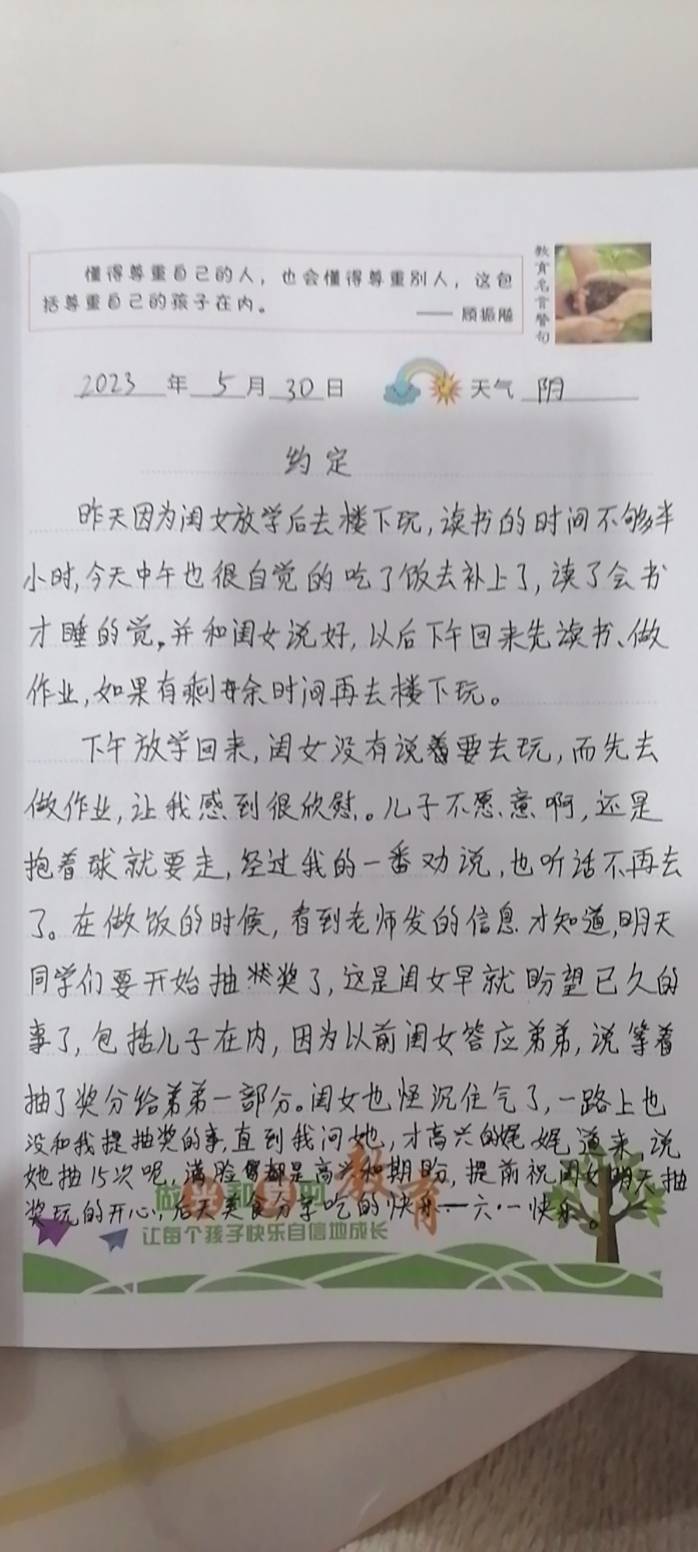 懂得尊重自己的人，也会懂得尊重别人，这包
括尊重自己的孩子在内。
—— 顾振飚
教育名言警句
2023年5月30日 天气 阴
约定
昨天因为闺女放学后去楼下玩,读书的时间不够半
小时,今天中午也很自觉的吃了饭去补上了,读了会书
才睡的觉,并和闺女说好,以后下午回来先读书、做
作业,如果有剩余时间再去楼下玩。
下午放学回来,闺女没有说着要去玩,而先去
做作业,让我感到很欣慰。儿子不愿意啊,还是
抱着球就要走,经过我的一番劝说,也听话不再去
了。在做饭的时候,看到老师发的信息才知道,明天
同学们要开始抽奖了,这是闺女早就盼望已久的
事了,包括儿子在内,因为以前闺女答应弟弟,说等着
抽了奖分给弟弟一部分。闺女也怪沉住气了,一路上也
没和我提抽奖的事,直到我问她,才高兴的娓娓道来说
她抽15次呢,满脸都是高兴和期盼,提前祝闺女明天抽
奖玩的开心,后天美食分享吃的快乐—六·一快乐。
做 的 教育
让每个孩子快乐自信地成长